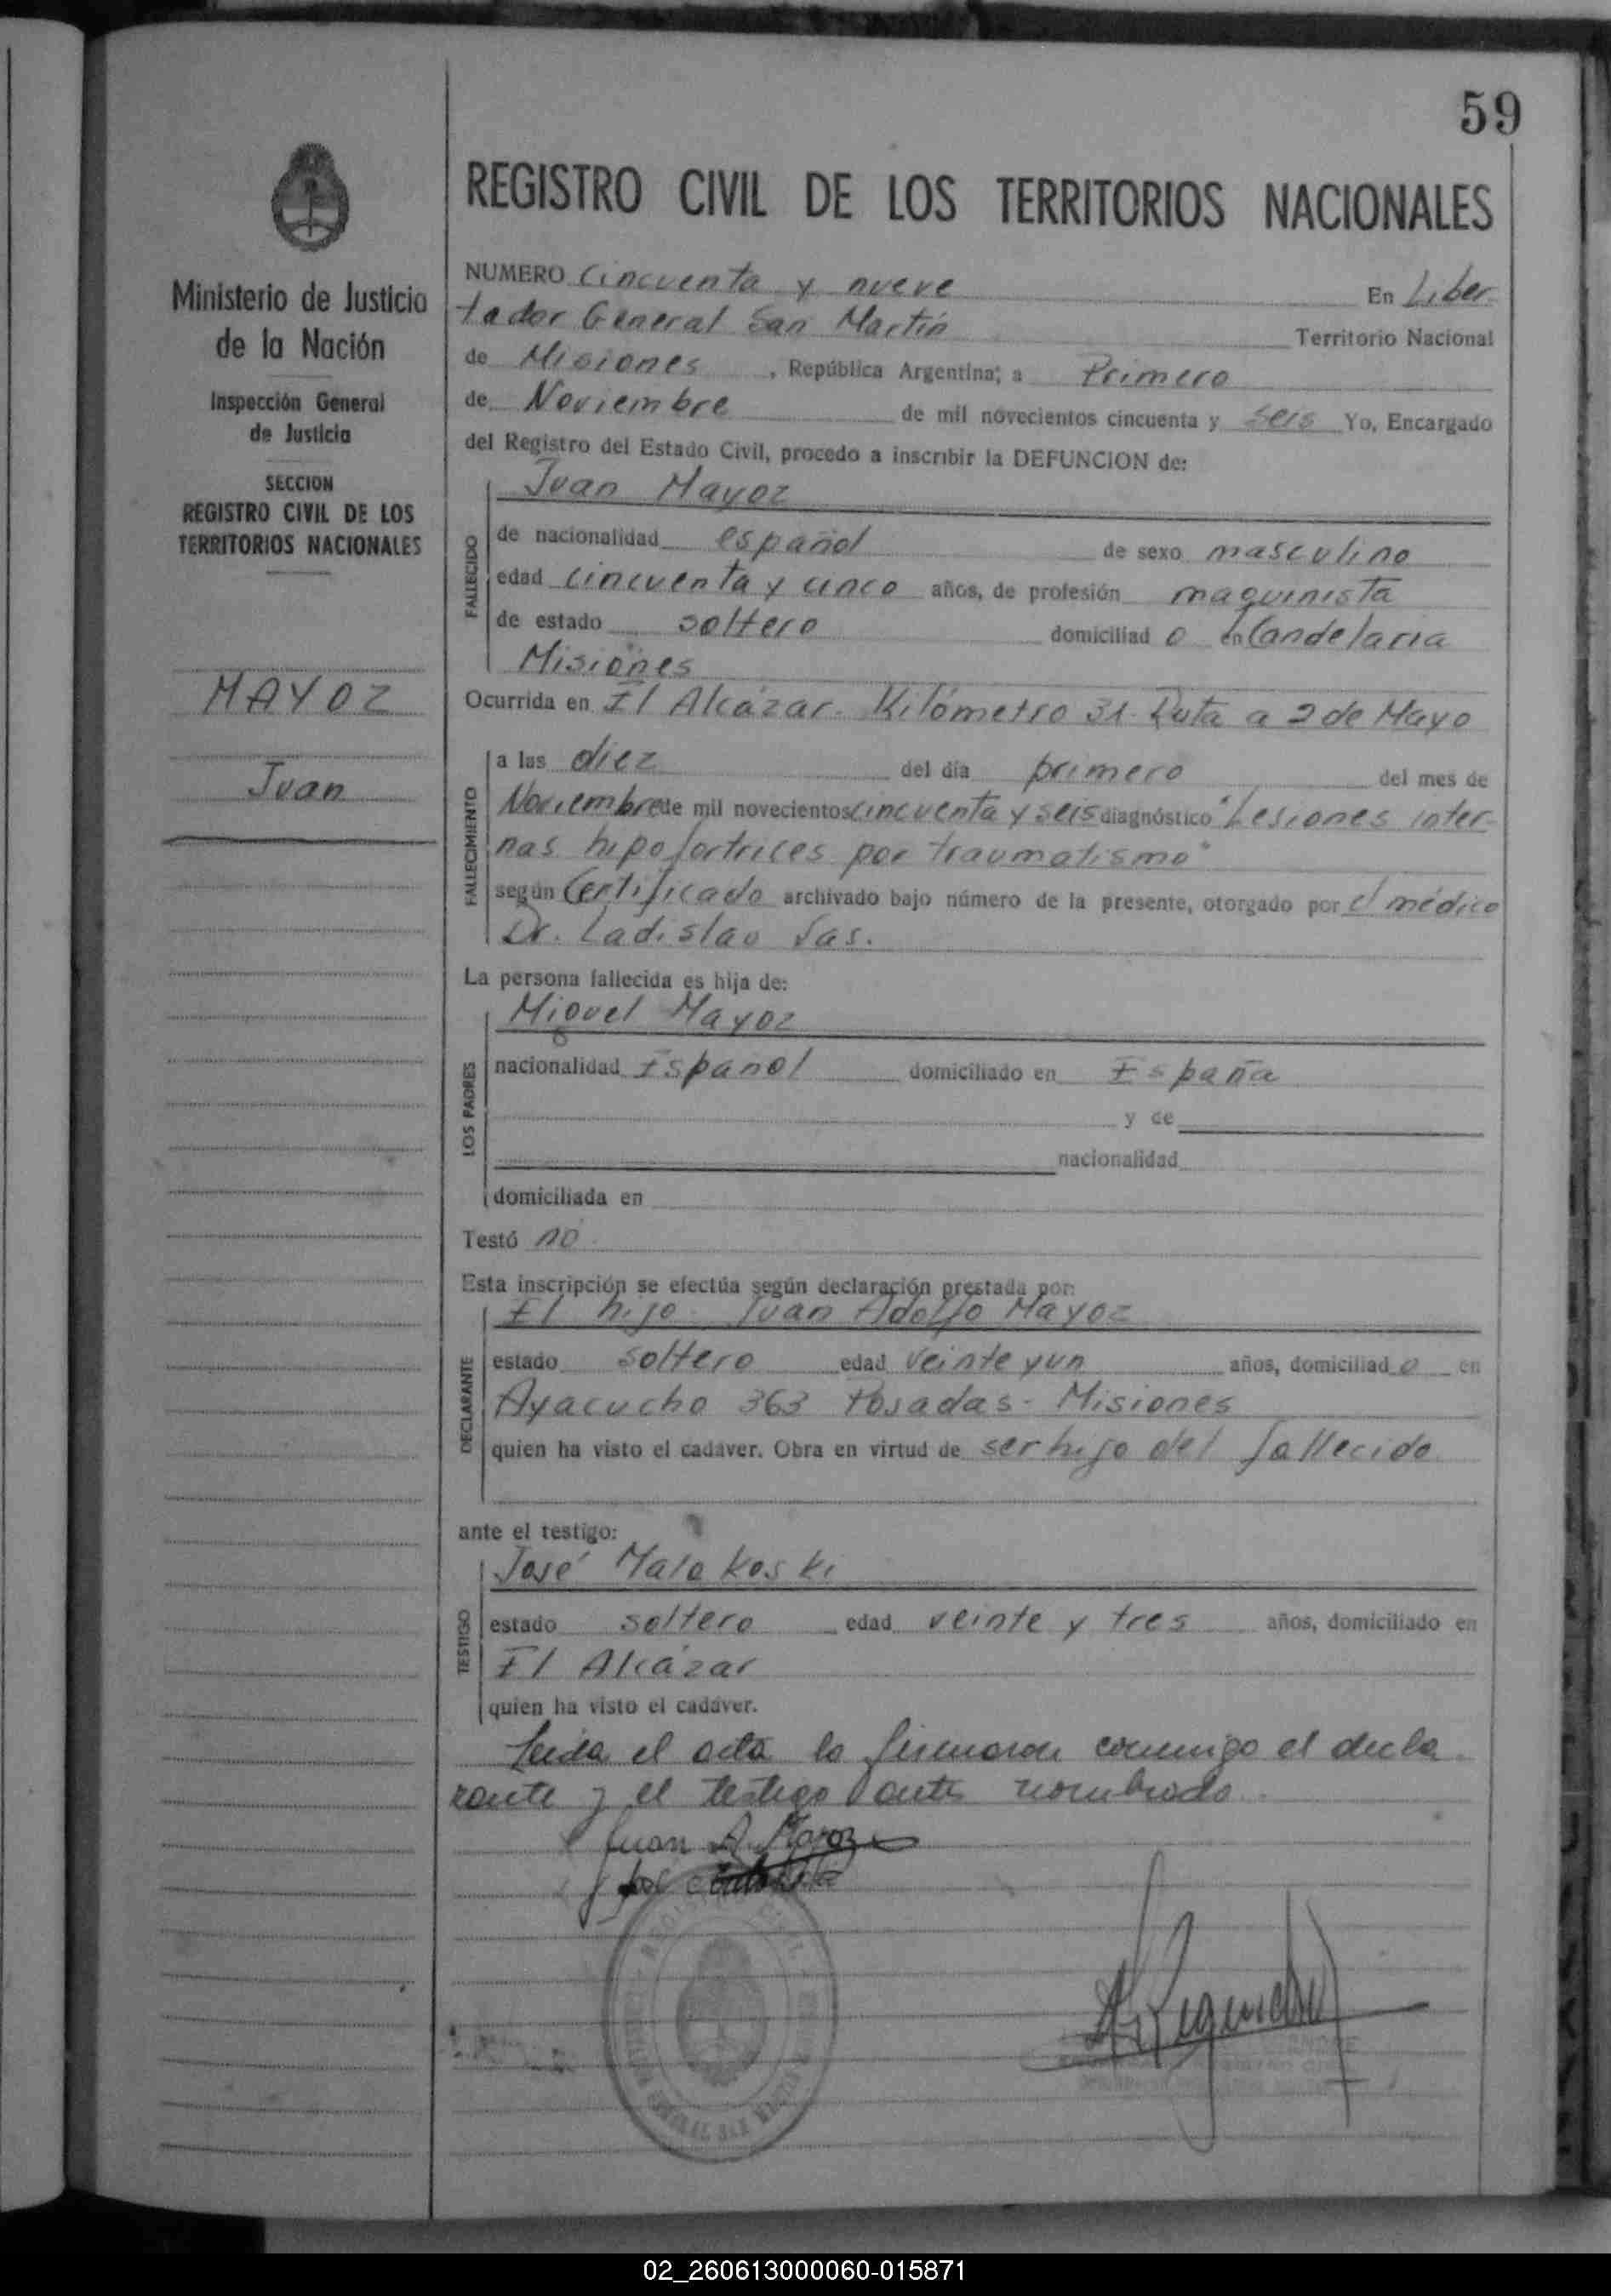 59
REGISTRO CIVIL DE LOS TERRITORIOS NACIONALES
Ministerio de Justicia
de la Nación
Inspección General
de Justicia
SECCION
REGISTRO CIVIL DE LOS
TERRITORIOS NACIONALES
MAYOZ
Juan
NUMERO Cincuenta y nueve En Liber-
tador General San Martín Territorio Nacional
de Misiones, República Argentina; a Primero
de Noviembre de mil novecientos cincuenta y seis Yo, Encargado
del Registro del Estado Civil, procedo a inscribir la DEFUNCION de:
Juan Mayoz
FALLECIDO
de nacionalidad español de sexo masculino
edad cincuenta y cinco años, de profesión maquinista
de estado soltero domiciliad o en Candelaria
Misiones
Ocurrida en El Alcázar. Kilómetro 31. Ruta a 2 de Mayo
FALLECIMIENTO
a las diez del día primero del mes de
Noviembre de mil novecientos cincuenta y seis diagnóstico "Lesiones inter-
nas por traumatismo"
según Certificado archivado bajo número de la presente, otorgado por el médico
Dr. Ladislao
La persona fallecida es hija de:
Miguel Mayoz
LOS PADRES
nacionalidad Español domiciliado en España
y de
nacionalidad
domiciliada en
Testó no
Esta inscripción se efectúa según declaración prestada por:
El hijo Juan Adolfo Mayoz
DECLARANTE
estado soltero edad veinte y un años, domiciliad o en
Ayacucho 363 Posadas - Misiones
quien ha visto el cadáver. Obra en virtud de ser hijo del fallecido
ante el testigo:
José Malakoski
TESTIGO
estado soltero edad veinte y tres años, domiciliado en
El Alcázar
quien ha visto el cadáver.
Leida el acta la firmaron conmigo el decla-
rante y el testigo antes nombrado.
Juan A. Mayoz
02_260613000060-015871